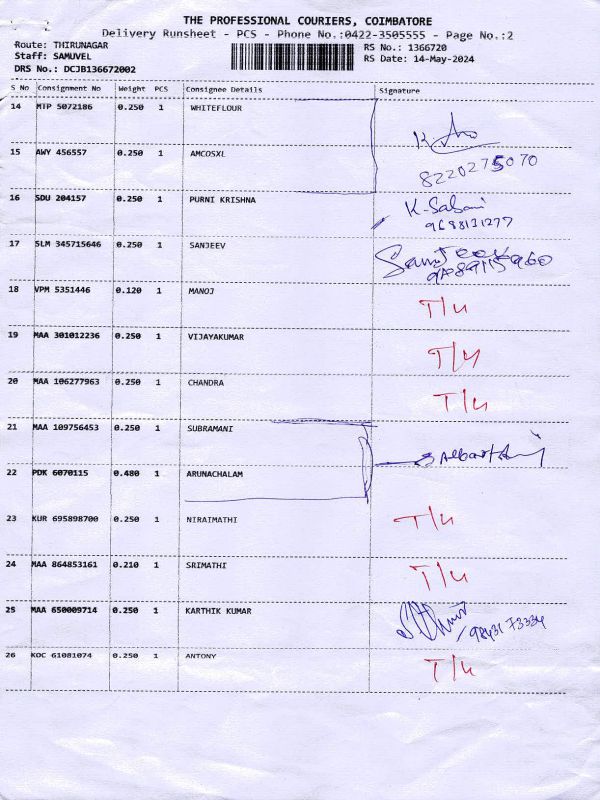 THE PROFESSIONAL COURIERS, COIMBATORE
Delivery Runsheet - PCS - Phone No.:0422-3505555 - Page No.:2
Route: THIRUNAGAR RS No.: 1366720
Staff: SAMUVEL RS Date: 14-May-2024
DRS No.: DCJB136672002
S No Consignment No Weight PCS Consignee Details Signature
14 MTP 5072186 0.250 1 WHITEFLOUR
15 AWY 456557 0.250 1 AMCOSXL
8220275070
16 SDU 204157 0.250 1 PURNI KRISHNA K-Sabari
9688131277
17 SLM 345715646 0.250 1 SANJEEV
18 VPM 5351446 0.120 1 MANOJ T/4
19 MAA 301012236 0.250 1 VIJAYAKUMAR T/4
20 MAA 106277963 0.250 1 CHANDRA T/4
21 MAA 109756453 0.250 1 SUBRAMANI
22 PDK 6070115 0.480 1 ARUNACHALAM
23 KUR 695898700 0.250 1 NIRAIMATHI T/4
24 MAA 864853161 0.210 1 SRIMATHI T/4
25 MAA 650009714 0.250 1 KARTHIK KUMAR 9843173334
26 KOC 61081074 0.250 1 ANTONY T/4